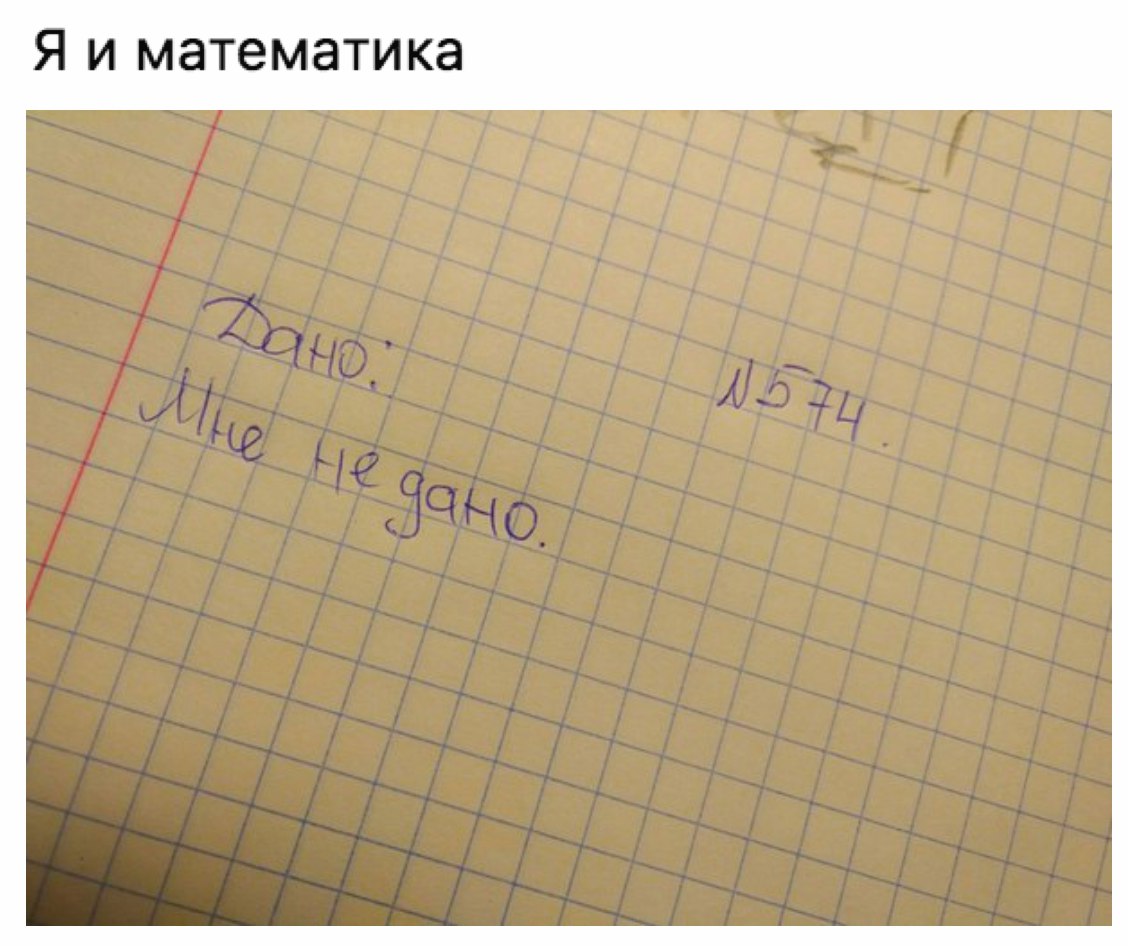 Я и математика
N574.
Дано:
Мне не дано.